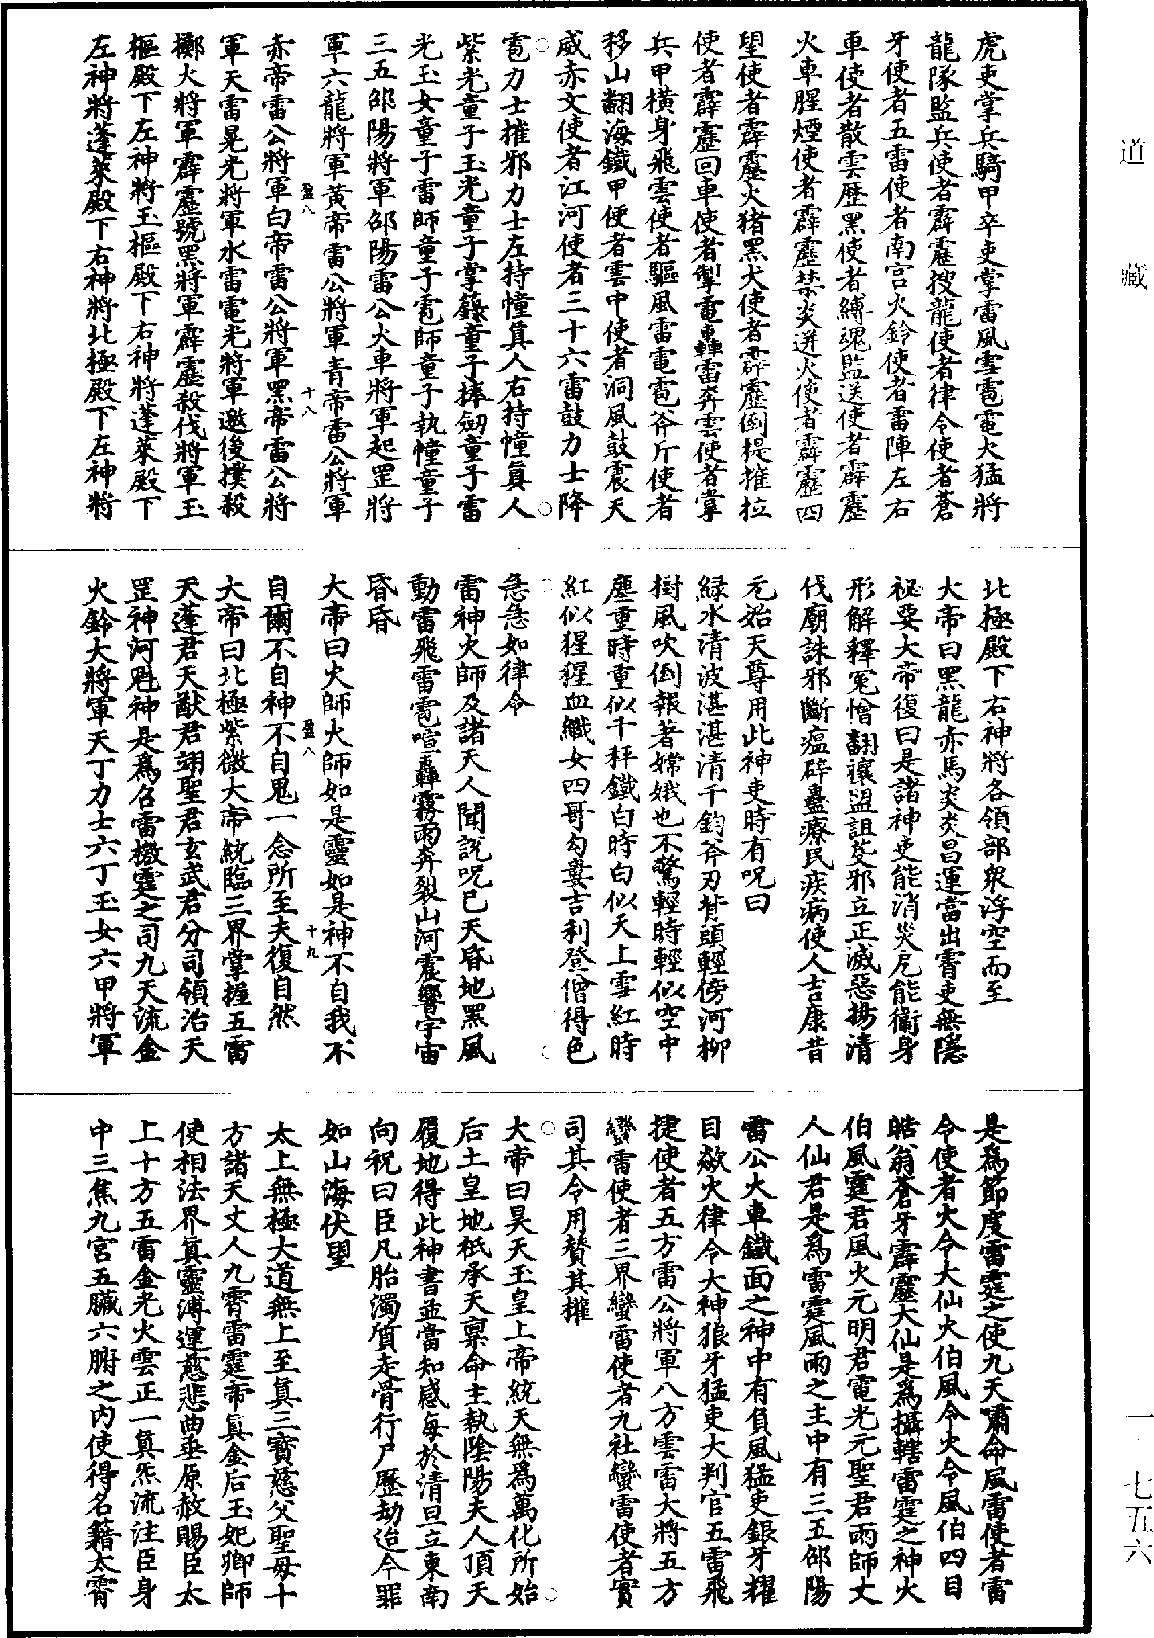 道藏
虎吏掌兵騎甲卒吏掌雷風雪雹電火猛將
龍隊監兵使者霹靂搜龍使者律令使者蒼
牙使者五雷使者南宮火鈴使者雷陣左右
車使者散雲歷黑使者縛魂監送使者霹靂
火車腥煙使者霹靂禁炎迸火使者霹靂四
望使者霹靂火猪黑犬使者霹靂倒提摧拉
使者霹靂回車使者掣電轟雷奔雲使者掌
兵甲橫身飛雲使者驅風雷電雹斧斤使者
移山翻海鐵甲使者雲中使者洞風鼓震天
威赤文使者江河使者三十六雷鼓力士降
雹力士摧邪力士左持幢真人右持幢真人
紫光童子玉光童子掌籙童子捧劒童子雷
光玉女童子雷師童子雹師童子執幢童子
三五邵陽將軍邵陽雷公火車將軍起罡將
軍六龍將軍黃帝雷公將軍青帝雷公將軍
盈八 十八
赤帝雷公將軍白帝雷公將軍黑帝雷公將
軍天雷晃光將軍水雷電光將軍邀後撲殺
擲火將軍霹靂號黑將軍霹靂殺伐將軍玉
樞殿下左神將玉樞殿下右神將蓬萊殿下
左神將蓬萊殿下右神將北極殿下左神將
北極殿下右神將各領部衆浮空而至
大帝曰黑龍赤馬炎炎昌運當出霄吏無隱
祕要大帝復曰是諸神吏能消災厄能衞身
形解釋冤憎翻禳盟詛芟邪立正滅惡揚清
伐廟誅邪斷瘟碎蠱療民疾病使人吉康昔
元始天尊用此神吏時有呪曰
緑水清波湛湛清千鈞斧刃背頭輕傍河柳
樹風吹倒報著嫦娥也不驚輕時輕似空中
塵重時重似千秤鐵白時白似天上雪紅時
紅似猩猩血織女四哥勾婁吉利登僧得色
急急如律令
雷神火師及諸天人聞說呪已天昏地黑風
動雷飛雷雹喧轟霧雨奔裂山河震響宇宙
昏昏
大帝曰火師火師如是靈如是神不自我不
盈八 十九
自爾不自神不自鬼一念所至夫復自然
大帝曰北極紫微大帝統臨三界掌握五雷
天蓬君天猷君翊聖君玄武君分司領治天
罡神河魁神是爲召雷檄霆之司九天流金
火鈴大將軍天丁力士六丁玉女六甲將軍
是爲節度雷霆之使九天嘯命風雷使者雷
令使者火令大仙火伯風令火令風伯四目
皓翁蒼牙霹靂大仙是爲攝轄雷霆之神火
伯風霆君風火元明君電光元聖君雨師丈
人仙君是爲雷霆風雨之主中有三五邵陽
雷公火車鐵面之神中有負風猛吏銀牙耀
目歘火律令大神狼牙猛吏大判官五雷飛
捷使者五方雷公將軍八方雲雷大將五方
蠻雷使者三界蠻雷使者九社蠻雷使者實
司其令用贊其權
大帝曰昊天玉皇上帝統天無爲萬化所始
后土皇地祇承天稟命主執陰陽夫人頂天
履地得此神書並當知感每於清旦立東南
向祝曰臣凡胎濁質走骨行尸歷劫迨今罪
如山海伏望
太上無極大道無上至真三寶慈父聖母十
方諸天丈人九霄雷霆帝真金后玉妃卿師
使相法界真靈溥運慈悲曲垂原赦賜臣太
上十方五雷金光火雲正一真炁流注臣身
中三焦九宮五臟六腑之內使得名籍太霄
一・七五六